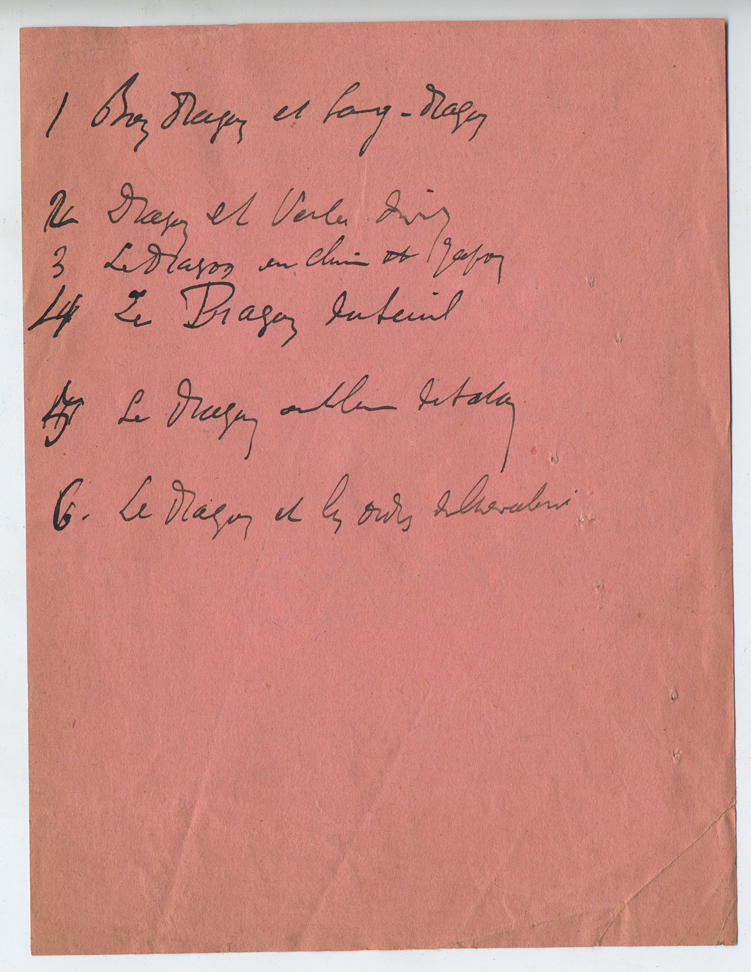 1 Bois dragon et Sang-dragon
2 Dragon et Verbe divin
3 Le Dragon en Chine et Japon
4 Le Dragon du seuil
5 Le Dragon emblème
6. Le Dragon et les ordres de Chevalerie